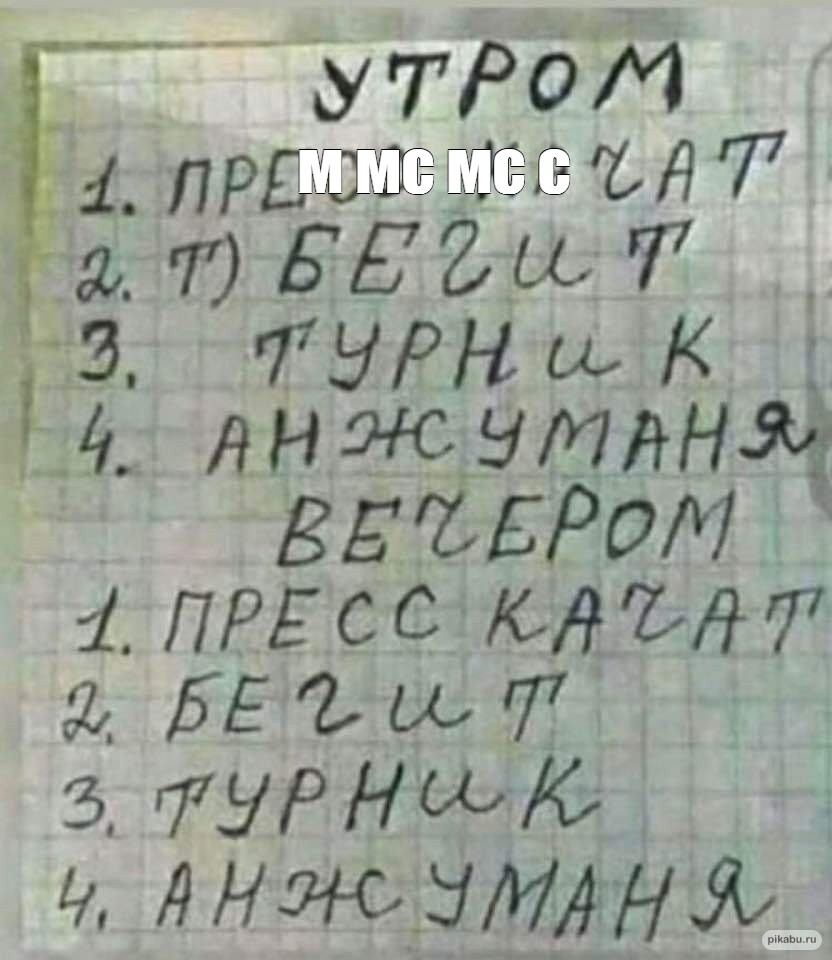 УТРОМ
1. ПРЕ М МС МС С ЧАТ
2. Т) БЕГИТ
3. ТУРНИК
4. АНЖУМАНЯ
ВЕЧЕРОМ
1. ПРЕСС КАЧАТ
2. БЕГИТ
3. ТУРНИК
4. АНЖУМАНЯ
pikabu.ru